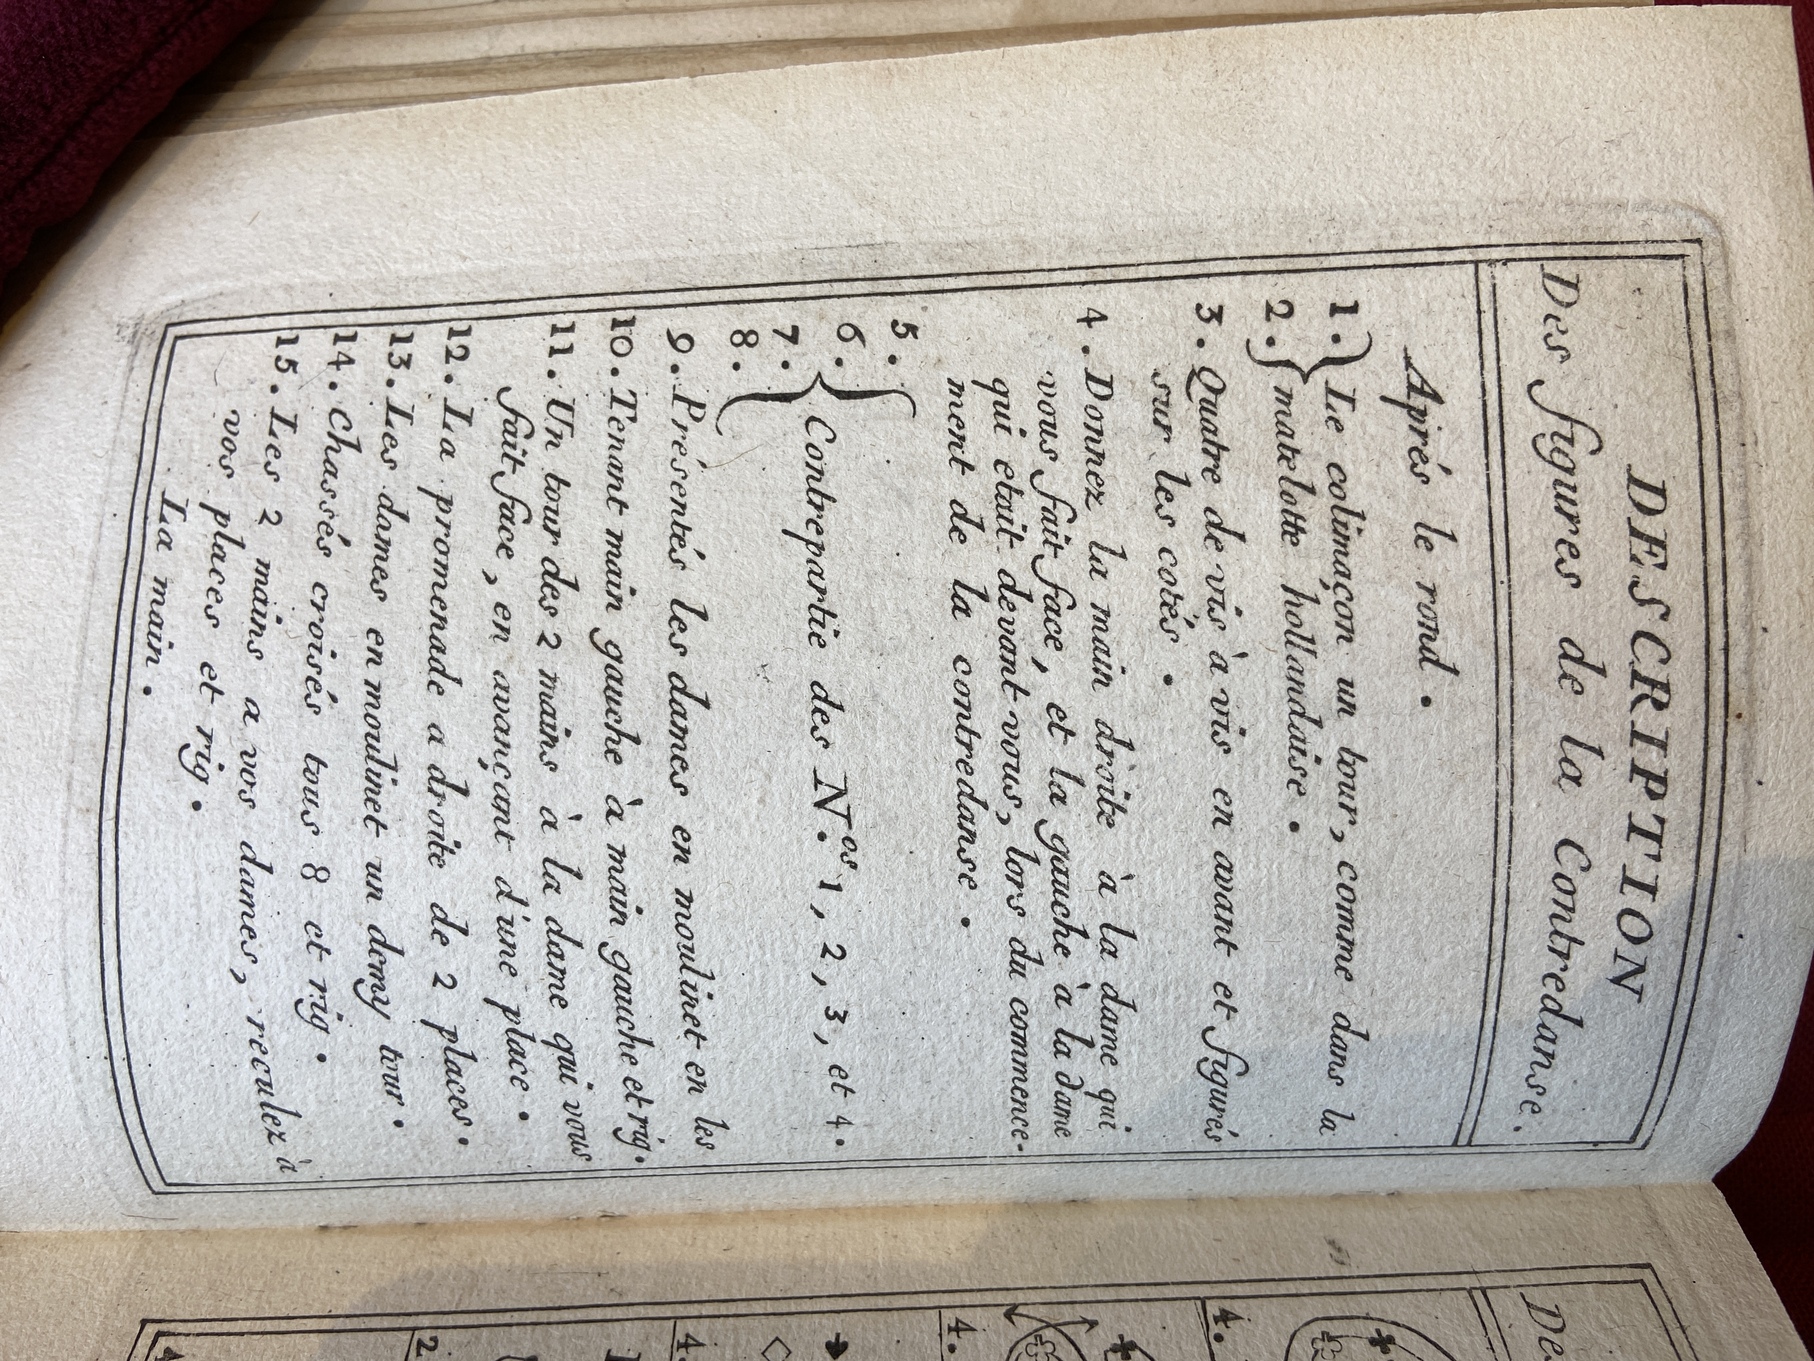 DESCRIPTION
Des figures de la Contredanse.
Aprés le rond.
1. Le colimaçon un tour, comme dans la
2. matelotte hollandaise.
3. Quatre de vis à vis en avant et figurés
sur les cotés.
4. Donnez la main droite à la dame qui
vous fait face, et la gauche à la dame
qui etait devant vous, lors du commence-
ment de la contredanse.
5.
6.
Contrepartie des N.os 1, 2, 3, et 4.
7.
8.
9. Présentés les dames en moulinet en les
10. Tenant main gauche à main gauche et rig.
11. Un tour des 2 mains à la dame qui vous
fait face, en avançant d'une place.
12. La promenade a droite de 2 places.
13. Les dames en moulinet un demy tour.
14. Chassés croisés tous 8 et rig.
15. Les 2 mains a vos dames, reculez à
vos places et rig.
La main.
De
4.
4.
4.
2